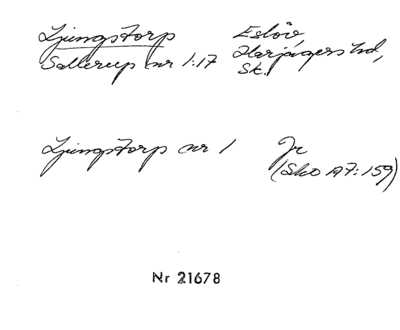 Ljungstorp Eslöv,
Sallerup nr 1:17 Harjagers hd,
Sk.
Ljungstorp nr 1 Jr
(Sko A7:159)
Nr 21678